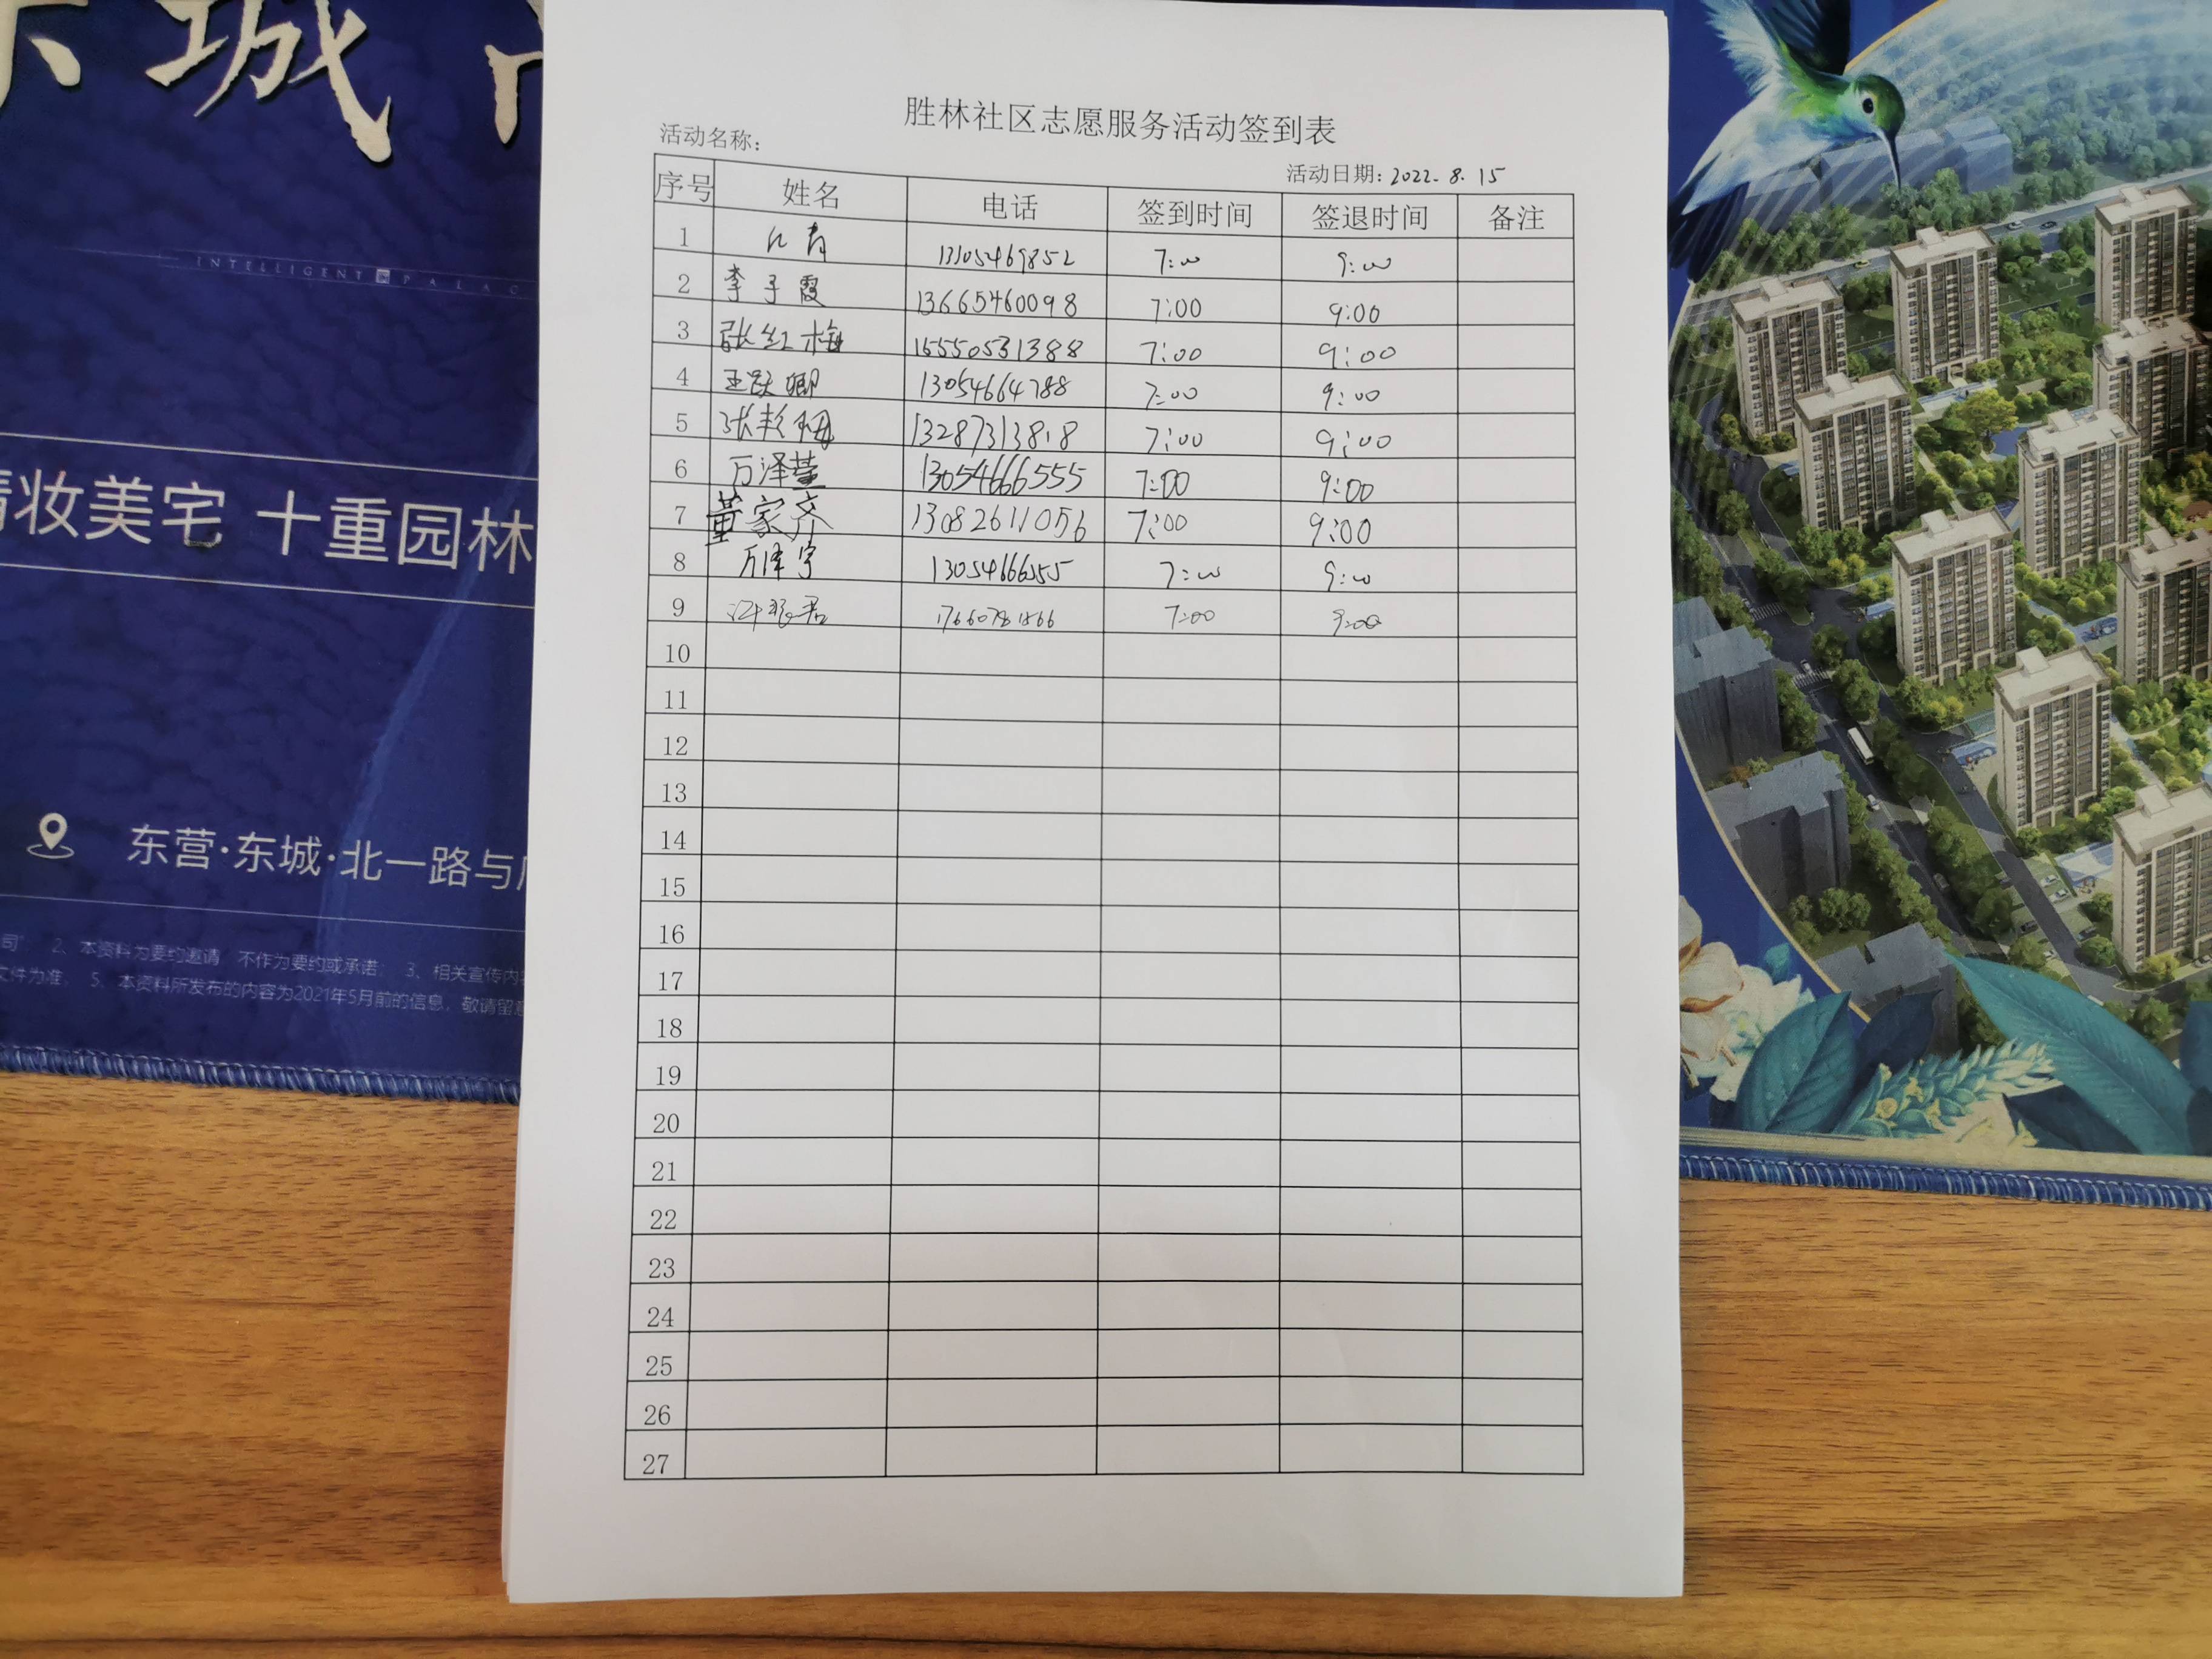 城
INTELLIGENT PALAC
精妆美宅 十重园林
东营·东城·北一路与
司” 2、本资料为要约邀请 不作为要约或承诺; 3、相关宣传内
文件为准, 5、本资料所发布的内容为2021年5月前的信息, 敬请留意
胜林社区志愿服务活动签到表
活动名称:
活动日期: 2022.8.15
序号 姓名 电话 签到时间 签退时间 备注
1 13105469852 7:00 9:00
2 李子霞 13665460098 7:00 9:00
3 张红梅 15550531388 7:00 9:00
4 王跃卿 13054664788 7:00 9:00
5 张 13287313818 7:00 9:00
6 万泽莹 13054666555 7:00 9:00
7 董家齐 13082611056 7:00 9:00
8 万泽宇 13054666555 7:00 9:00
9 17660781866 7:00 9:00
10
11
12
13
14
15
16
17
18
19
20
21
22
23
24
25
26
27